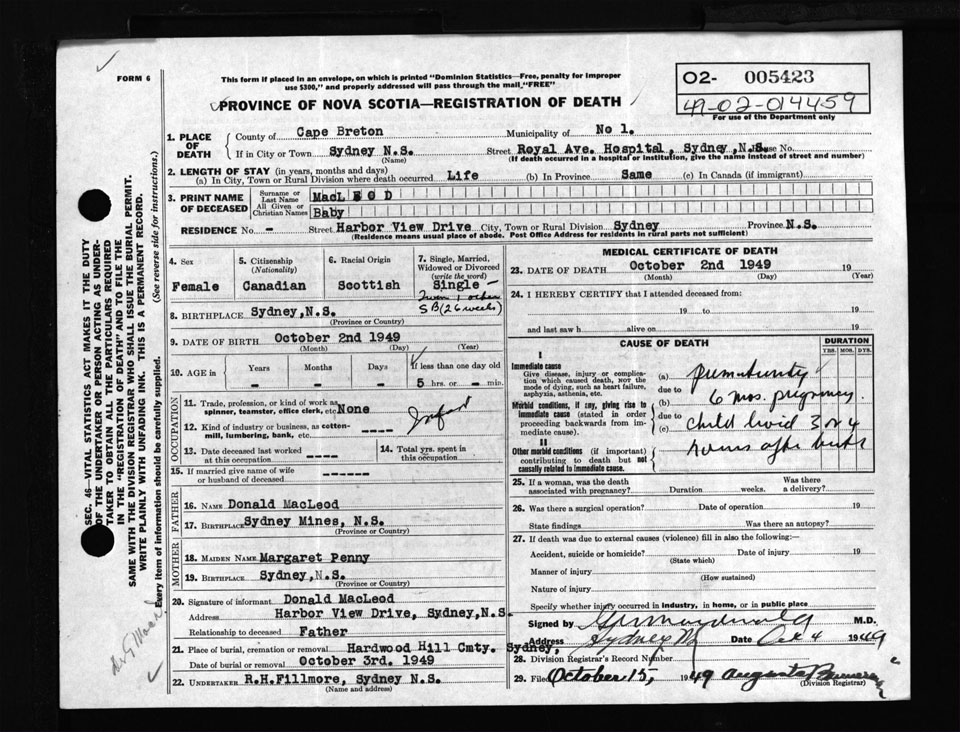 FORM 6
This form if placed in an envelope, on which is printed "Dominion Statistics—Free, penalty for improper
use $300," and properly addressed will pass through the mail "FREE"
02- 005423
49-02-014459
For use of the Department only
PROVINCE OF NOVA SCOTIA—REGISTRATION OF DEATH
1. PLACE OF DEATH
County of Cape Breton Municipality of No 1.
If in City or Town Sydney N.S. Street Royal Ave. Hospital, Sydney, N.S. House No.
(Name) (If death occurred in a hospital or institution, give the name instead of street and number)
2. LENGTH OF STAY (in years, months and days)
(a) In City, Town or Rural Division where death occurred Life (b) In Province Same (c) In Canada (if immigrant)
3. PRINT NAME OF DECEASED
Surname or Last Name MacL E O D
All Given or Christian Names Baby
RESIDENCE No. - Street Harbor View Drive City, Town or Rural Division Sydney Province N.S.
(Residence means usual place of abode. Post Office Address for residents in rural parts not sufficient)
4. Sex Female
5. Citizenship (Nationality) Canadian
6. Racial Origin Scottish
7. Single, Married, Widowed or Divorced (write the word) Single —
Twin 1 other
SB (26 weeks)
8. BIRTHPLACE Sydney, N.S.
(Province or Country)
9. DATE OF BIRTH October 2nd 1949
(Month) (Day) (Year)
10. AGE in Years - Months - Days - If less than one day old 5 hrs. or - min.
OCCUPATION
11. Trade, profession, or kind of work as spinner, teamster, office clerk, etc None
12. Kind of industry or business, as cotton-mill, lumbering, bank, etc. ----
13. Date deceased last worked at this occupation ----
14. Total yrs. spent in this occupation
15. If married give name of wife or husband of deceased ------
FATHER
16. NAME Donald MacLeod
17. BIRTHPLACE Sydney Mines, N.S.
(Province or Country)
MOTHER
18. MAIDEN NAME Margaret Penny
19. BIRTHPLACE Sydney, N.S.
(Province or Country)
20. Signature of informant Donald MacLeod
Address Harbor View Drive, Sydney, N.S-
Relationship to deceased Father
21. Place of burial, cremation or removal Hardwood Hill Cmty. Sydney,
Date of burial or removal October 3rd. 1949
22. UNDERTAKER R.H.Fillmore, Sydney N.S.
(Name and address)
MEDICAL CERTIFICATE OF DEATH
23. DATE OF DEATH October 2nd 1949 19
(Month) (Day) (Year)
24. I HEREBY CERTIFY that I attended deceased from:
19 to 19
and last saw h alive on 19
CAUSE OF DEATH
DURATION
YRS. MOS. DYS.
I
Immediate cause
Give disease, injury or complication which caused death, not the mode of dying, such as heart failure, asphyxia, asthenia, etc.
(a) prematurity
due to
Morbid conditions, if any, giving rise to immediate cause (stated in order proceeding backwards from immediate cause).
(b) 6 mos. pregnancy.
due to
(c) child lived 3 or 4
hours after birth
II
Other morbid conditions (if important) contributing to death but not causally related to immediate cause.
25. If a woman, was the death associated with pregnancy? Duration weeks. Was there a delivery?
26. Was there a surgical operation? Date of operation 19
State findings Was there an autopsy?
27. If death was due to external causes (violence) fill in also the following:—
Accident, suicide or homicide? Date of injury 19
(State which)
Manner of injury
(How sustained)
Nature of injury
Specify whether injury occurred in industry, in home, or in public place
Signed by M.D.
Address Sydney NS Date Oct 4 1949
28. Division Registrar's Record Number
29. Filed October 15, 1949 Augusta
(Division Registrar)
SEC. 46—VITAL STATISTICS ACT MAKES IT THE DUTY
OF THE UNDERTAKER OR PERSON ACTING AS UNDER-
TAKER TO OBTAIN ALL THE PARTICULARS REQUIRED
IN THE "REGISTRATION OF DEATH" AND TO FILE THE
SAME WITH THE DIVISION REGISTRAR WHO SHALL ISSUE THE BURIAL PERMIT.
WRITE PLAINLY WITH UNFADING INK. THIS IS A PERMANENT RECORD.
Every item of information should be carefully supplied. (See reverse side for instructions.)